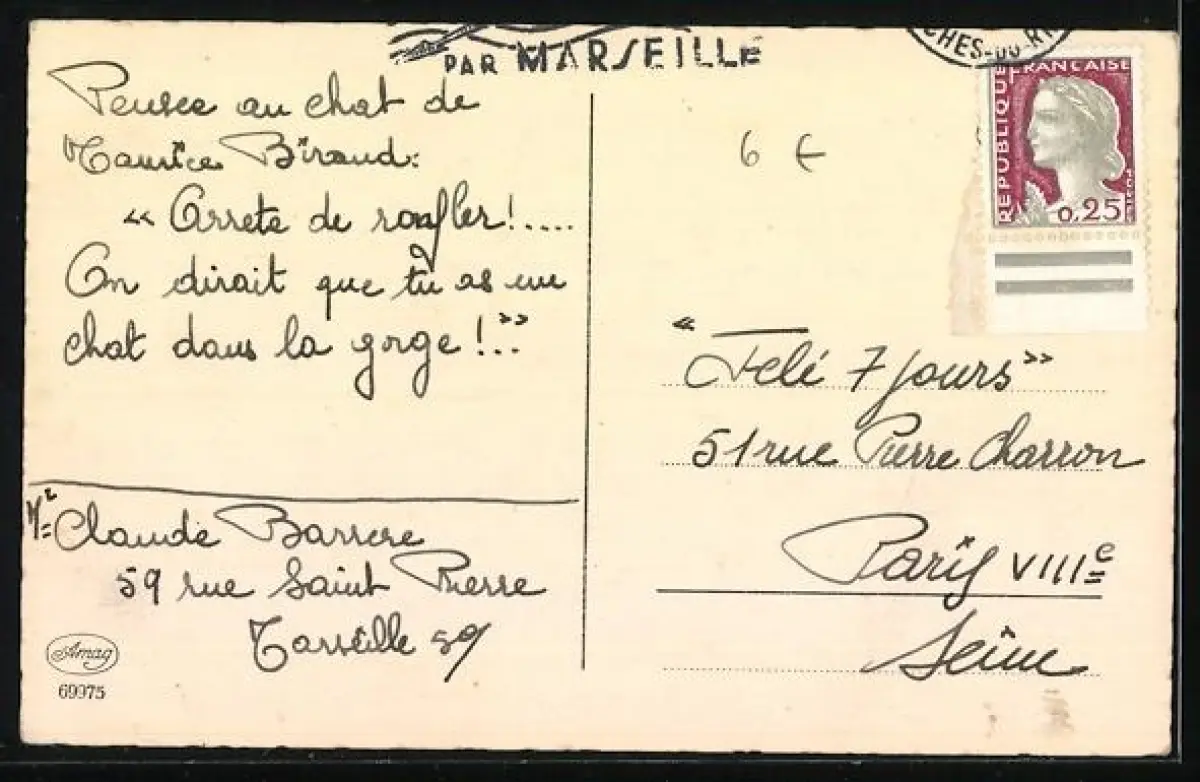 PAR MARSEILLE
CHES-DU-R
REPUBLIQUE FRANCAISE
0,25
6 €
Pensée au chat de
Maurice Biraud:
« Arrete de ronfler!....
On dirait que tu as un
chat dans la gorge!.. »
Claude Barrere
59 rue Saint Pierre
Marseille 5e
Amag
69975
« Télé 7 jours »
51 rue Pierre Charron
Paris VIIIe
Seine